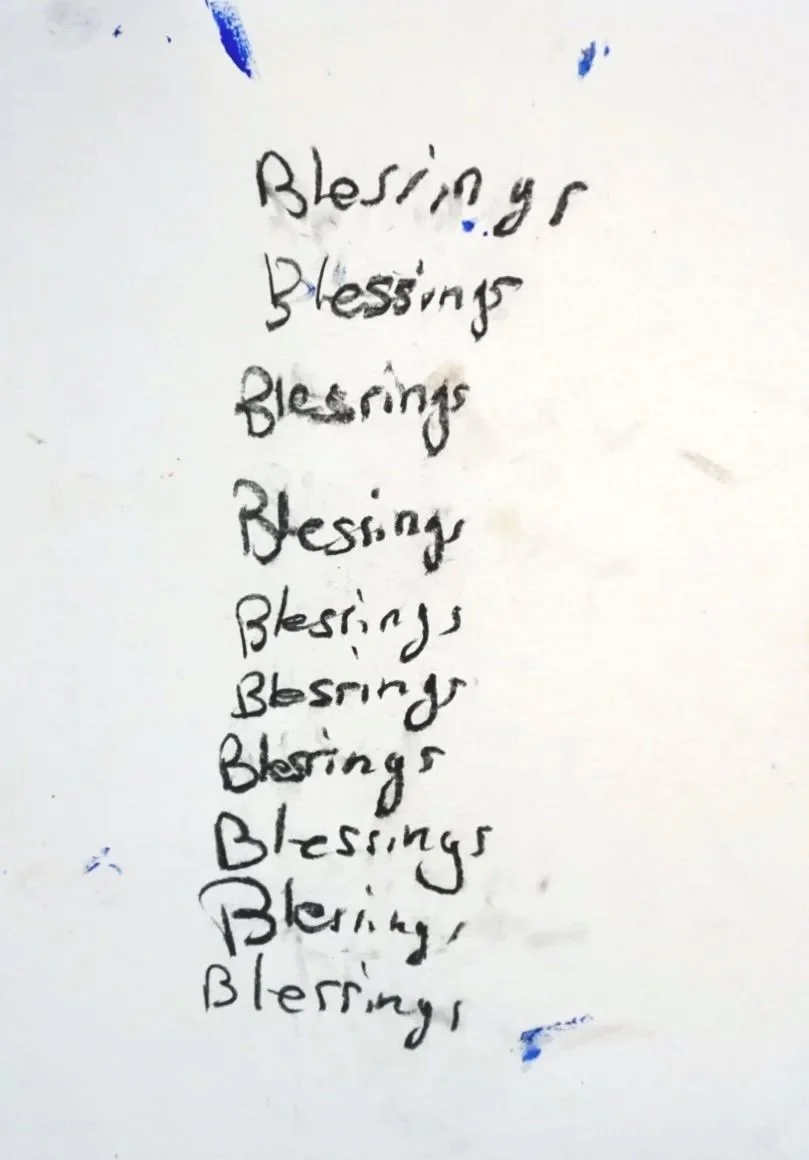 Blessings
Blessings
Blessings
Blessings
Blessings
Blessings
Blessings
Blessings
Blessings
Blessings